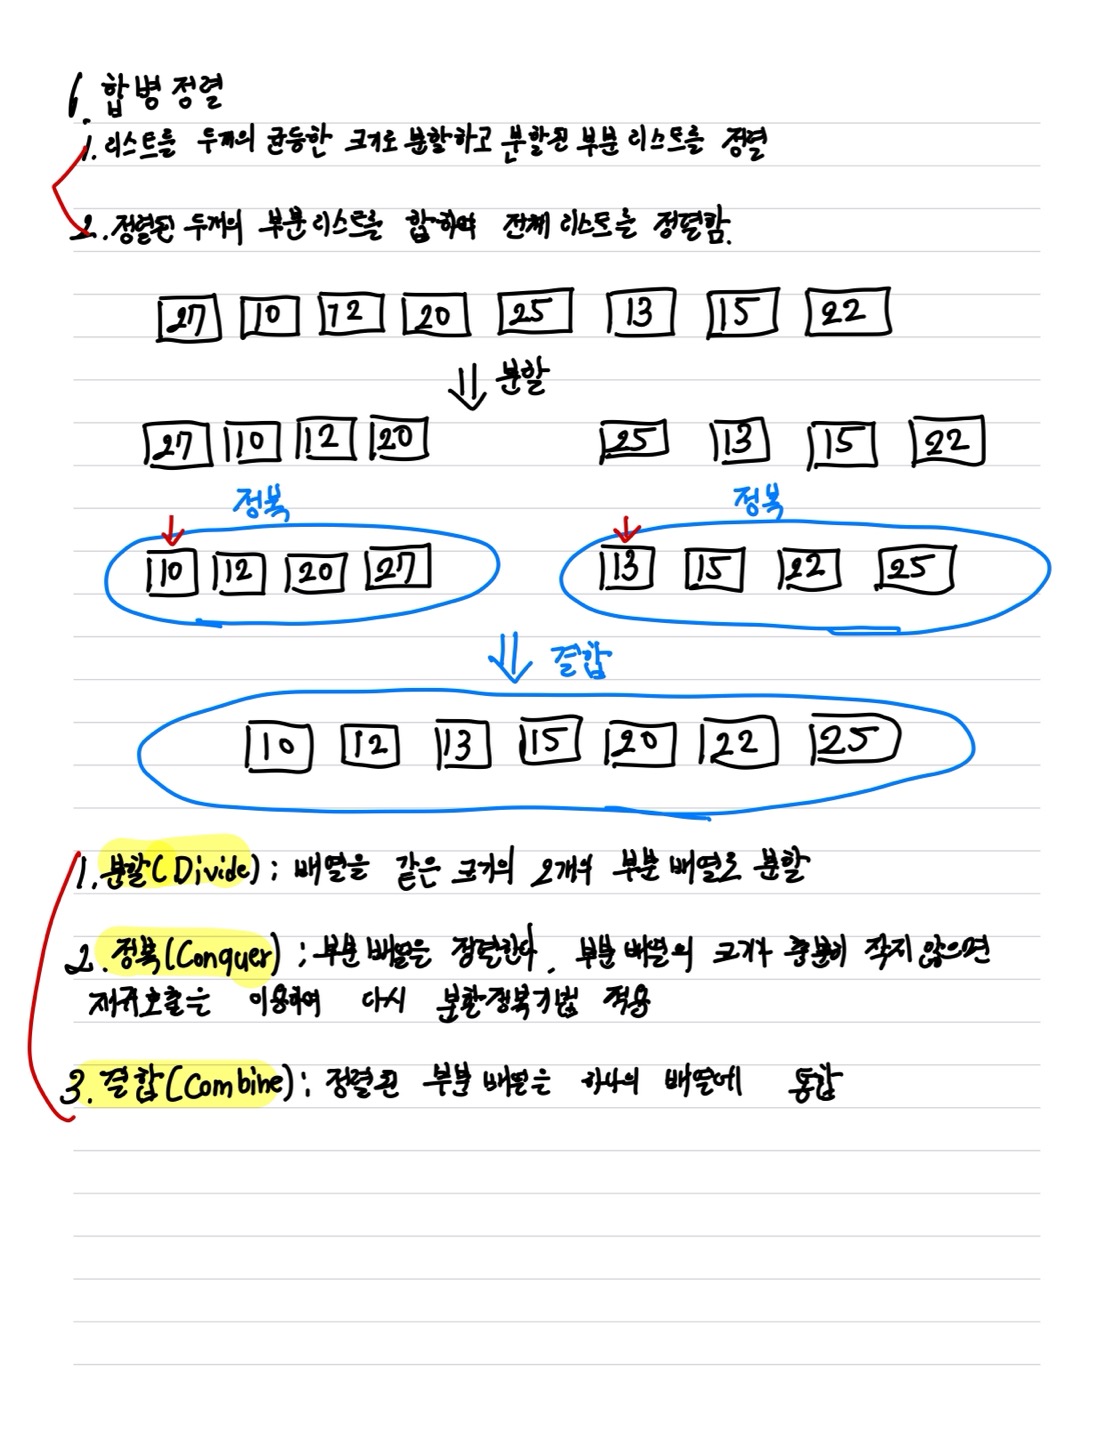 6. 합병정렬
1. 리스트를 두개의 균등한 크기로 분할하고 분할된 부분 리스트를 정렬
2. 정렬된 두개의 부분리스트를 합하여 전체 리스트를 정렬함.
27 10 12 20 25 13 15 22
분할
27 10 12 20 25 13 15 22
정복 정복
10 12 20 27 13 15 22 25
결합
10 12 13 15 20 22 25
1. 분할(Divide) : 배열을 같은 크기의 2개의 부분 배열로 분할
2. 정복(Conquer) : 부분배열을 정렬한다. 부분배열의 크기가 충분히 작지 않으면
재귀호출을 이용하여 다시 분할정복기법 적용
3. 결합(Combine) : 정렬된 부분 배열을 하나의 배열에 통합